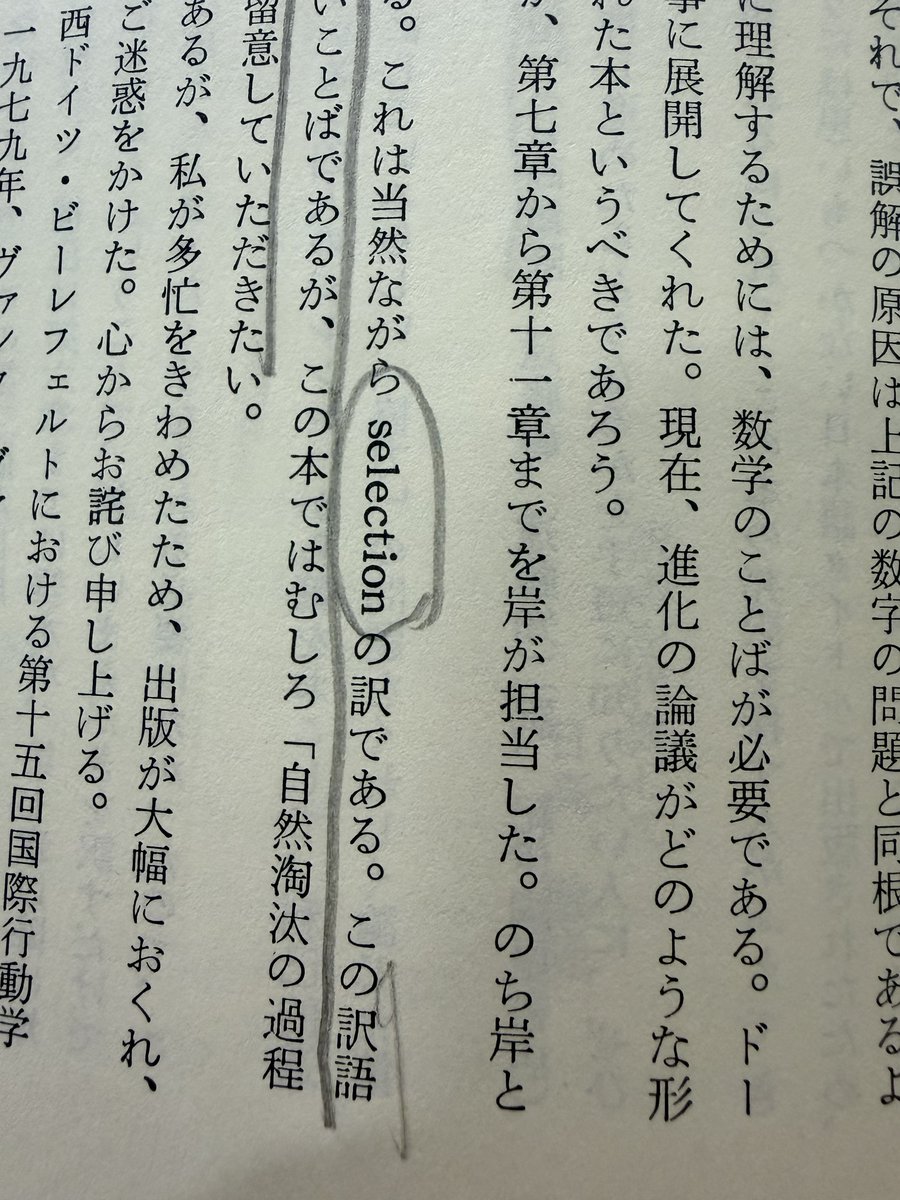 それで、誤解の原因は上記の数字の問題と同根であるよ
に理解するためには、数学のことばが必要である。ドー
事に展開してくれた。現在、進化の論議がどのような形
れた本というべきであろう。
が、第七章から第十一章までを岸が担当した。のち岸と
る。これは当然ながら selection の訳である。この訳語
いことばであるが、この本ではむしろ「自然淘汰の過程
留意していただきたい。
あるが、私が多忙をきわめたため、出版が大幅におくれ、
ご迷惑をかけた。心からお詫び申し上げる。
西ドイツ・ビーレフェルトにおける第十五回国際行動学
一九七九年、ヴァン